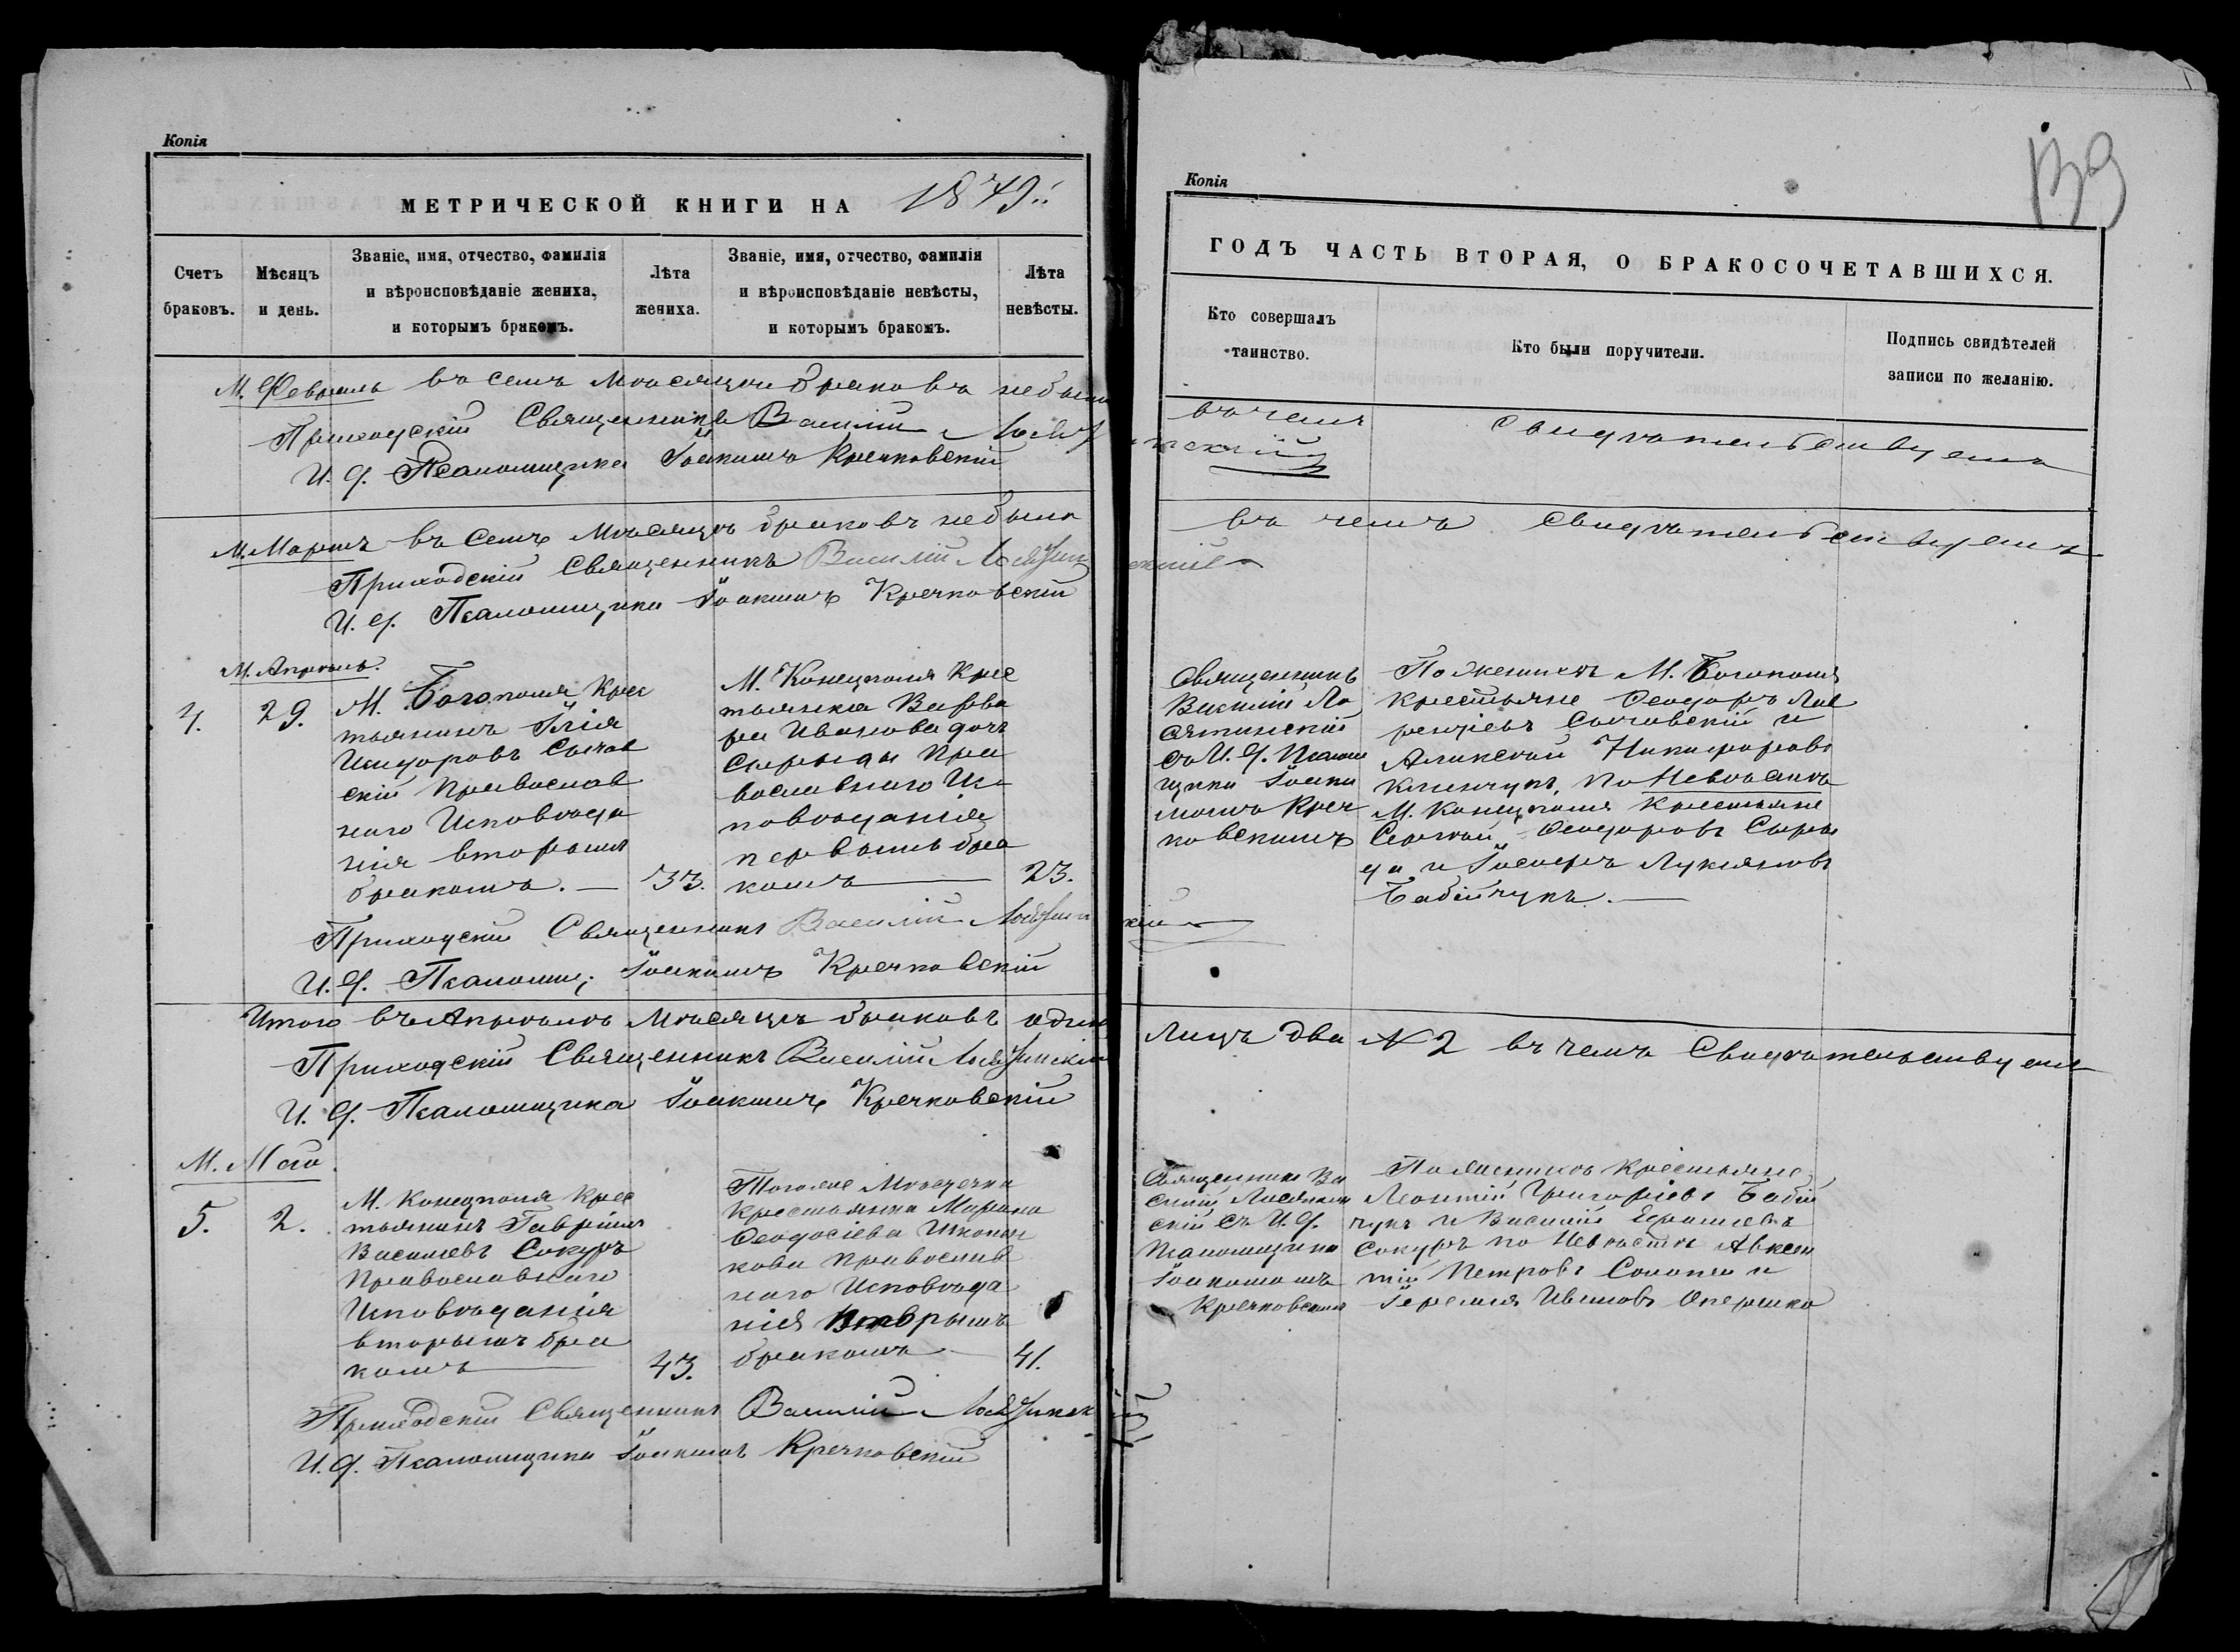 Копія
МЕТРИЧЕСКОЙ КНИГИ НА 1879.
Счетъ браковъ.
Мѣсяцъ и день.
Званіе, имя, отчество, фамилія
и вѣроисповѣданіе жениха,
и которымъ бракомъ.
Лѣта жениха.
Званіе, имя, отчество, фамилія
и вѣроисповѣданіе невѣсты,
и которымъ бракомъ.
Лѣта невѣсты.
М. Февраль въ семъ мѣсяцѣ браковъ не было
Приходскій Священникъ Василій
И. д. Псаломщика Іоакимъ Кречковскій
М. Мартъ въ семъ мѣсяцѣ браковъ не было
Приходскій Священникъ Василій
И. д. Псаломщика Іоакимъ Кречковскій
М. Апрѣль.
4.
29.
М. Богополя крес
тьянинъ Илія
Исидоровъ Сычов
скій Православ
наго Исповѣда
нія вторымъ
бракомъ.
33.
М. Конецполя крес
тьянка Варва
ра Иванова дочь
Сыроды Пра
вославнаго Ис
повѣданія
первымъ бра
комъ
23.
Приходскій Священникъ Василій
И. д. Псаломщ; Іоакимъ Кречковскій
Итого въ Апрѣлѣ мѣсяцѣ браковъ одинъ
Приходскій Священникъ Василій
И. д. Псаломщика Іоакимъ Кречковскій
М. Май
5.
2.
М. Конецполя крес
тьянинъ Гавріилъ
Василіевъ Сокуръ
Православнаго
Исповѣданія
вторымъ бра
комъ
43.
Тогоже мѣстечка
крестьянка Марина
Феодосіева
кова Православ
наго Исповѣда
нія вторымъ
бракомъ
41.
Приходскій Священникъ Василій
И. д. Псаломщика Іоакимъ Кречковскій
139
Копія
ГОДЪ ЧАСТЬ ВТОРАЯ, О БРАКОСОЧЕТАВШИХСЯ.
Кто совершалъ
таинство.
Кто были поручители.
Подпись свидѣтелей
записи по желанію.
въ чемъ свидѣтельствуемъ
въ чемъ свидѣтельствуемъ
Священникъ
Василій
съ И. д. Псалом
щика Іоаки
момъ Креч
ковскимъ
По женихѣ М. Богополя
крестьяне Феодоръ Лав
рентіевъ Сычовскій и
Алексѣй Никифоровъ
по Невѣстѣ
М. Конецполя крестьяне
Сергѣй Феодоровъ Сыро
да и Іосифъ Лукіяновъ
Бабійчукъ.
Лицъ два № 2 въ чемъ Свидѣтельствуемъ
Священникъ Ва
силій
скій съ И. д.
Псаломщика
Іоакимомъ
Кречковскимъ
По женихѣ крестьяне
Леонтій Григоріевъ Бабій
чукъ и Василій
Сокуръ по Невѣстѣ Авксен
тій Петровъ и
Іеремія Ивановъ